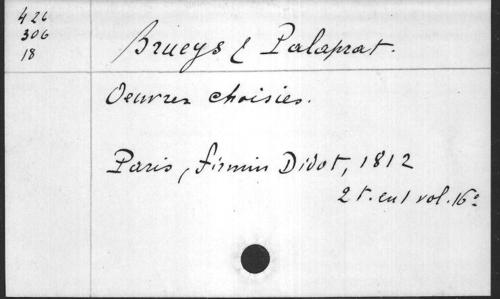 426
306
18
Brueys & Palaprat.
Oeuvres choisies.
Paris, Firmin Didot, 1812
2 t. en 1 vol. 16º